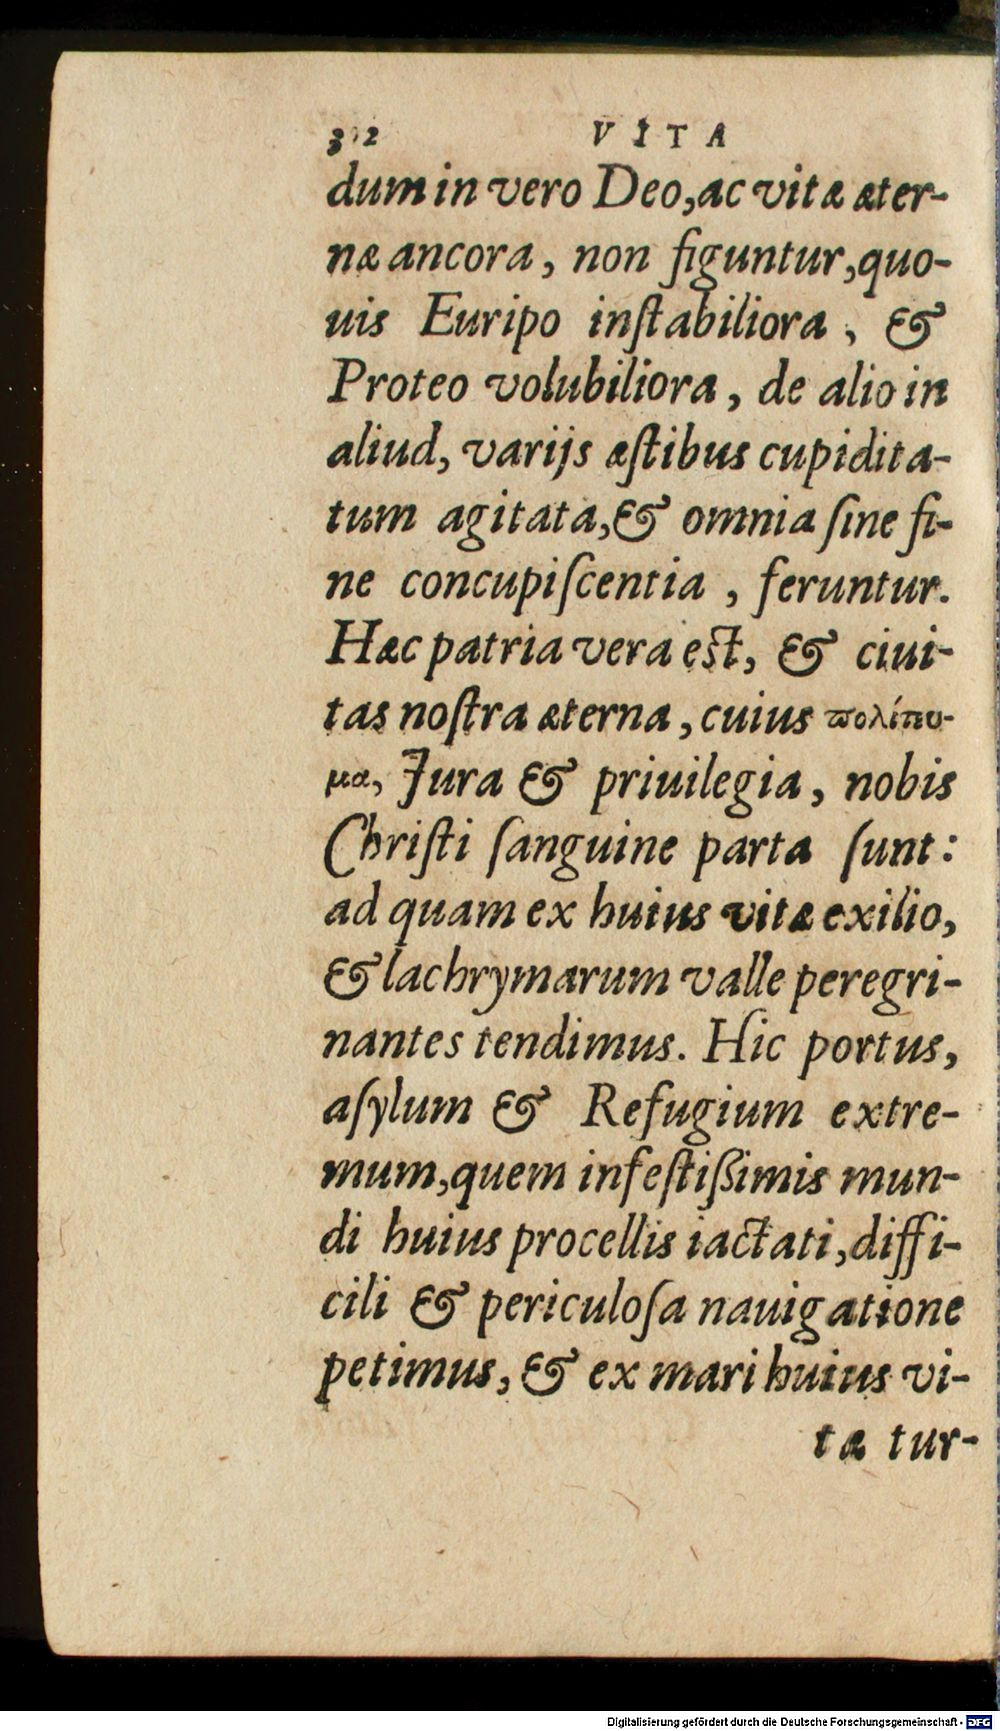 32 VITA
dum in vero Deo, ac vitæ æter-
næ ancora, non figuntur, quo-
uis Euripo inſtabiliora, &
Proteo volubiliora, de alio in
aliud, varijs æſtibus cupidita-
tum agitata, & omnia ſine fi-
ne concupiſcentia, feruntur.
Hæc patria vera est, & ciui-
tas noſtra æterna, cuius πολίτευ-
μα, Jura & priuilegia, nobis
Chriſti ſanguine parta ſunt:
ad quam ex huius vitæ exilio,
& lachrymarum valle peregri-
nantes tendimus. Hic portus,
aſylum & Refugium extre-
mum, quem infeſtißimis mun-
di huius procellis iactati, diffi-
cili & periculoſa nauigatione
petimus, & ex mari huius vi-
tæ tur-
Digitalisierung gefördert durch die Deutsche Forschungsgemeinschaft - DFG